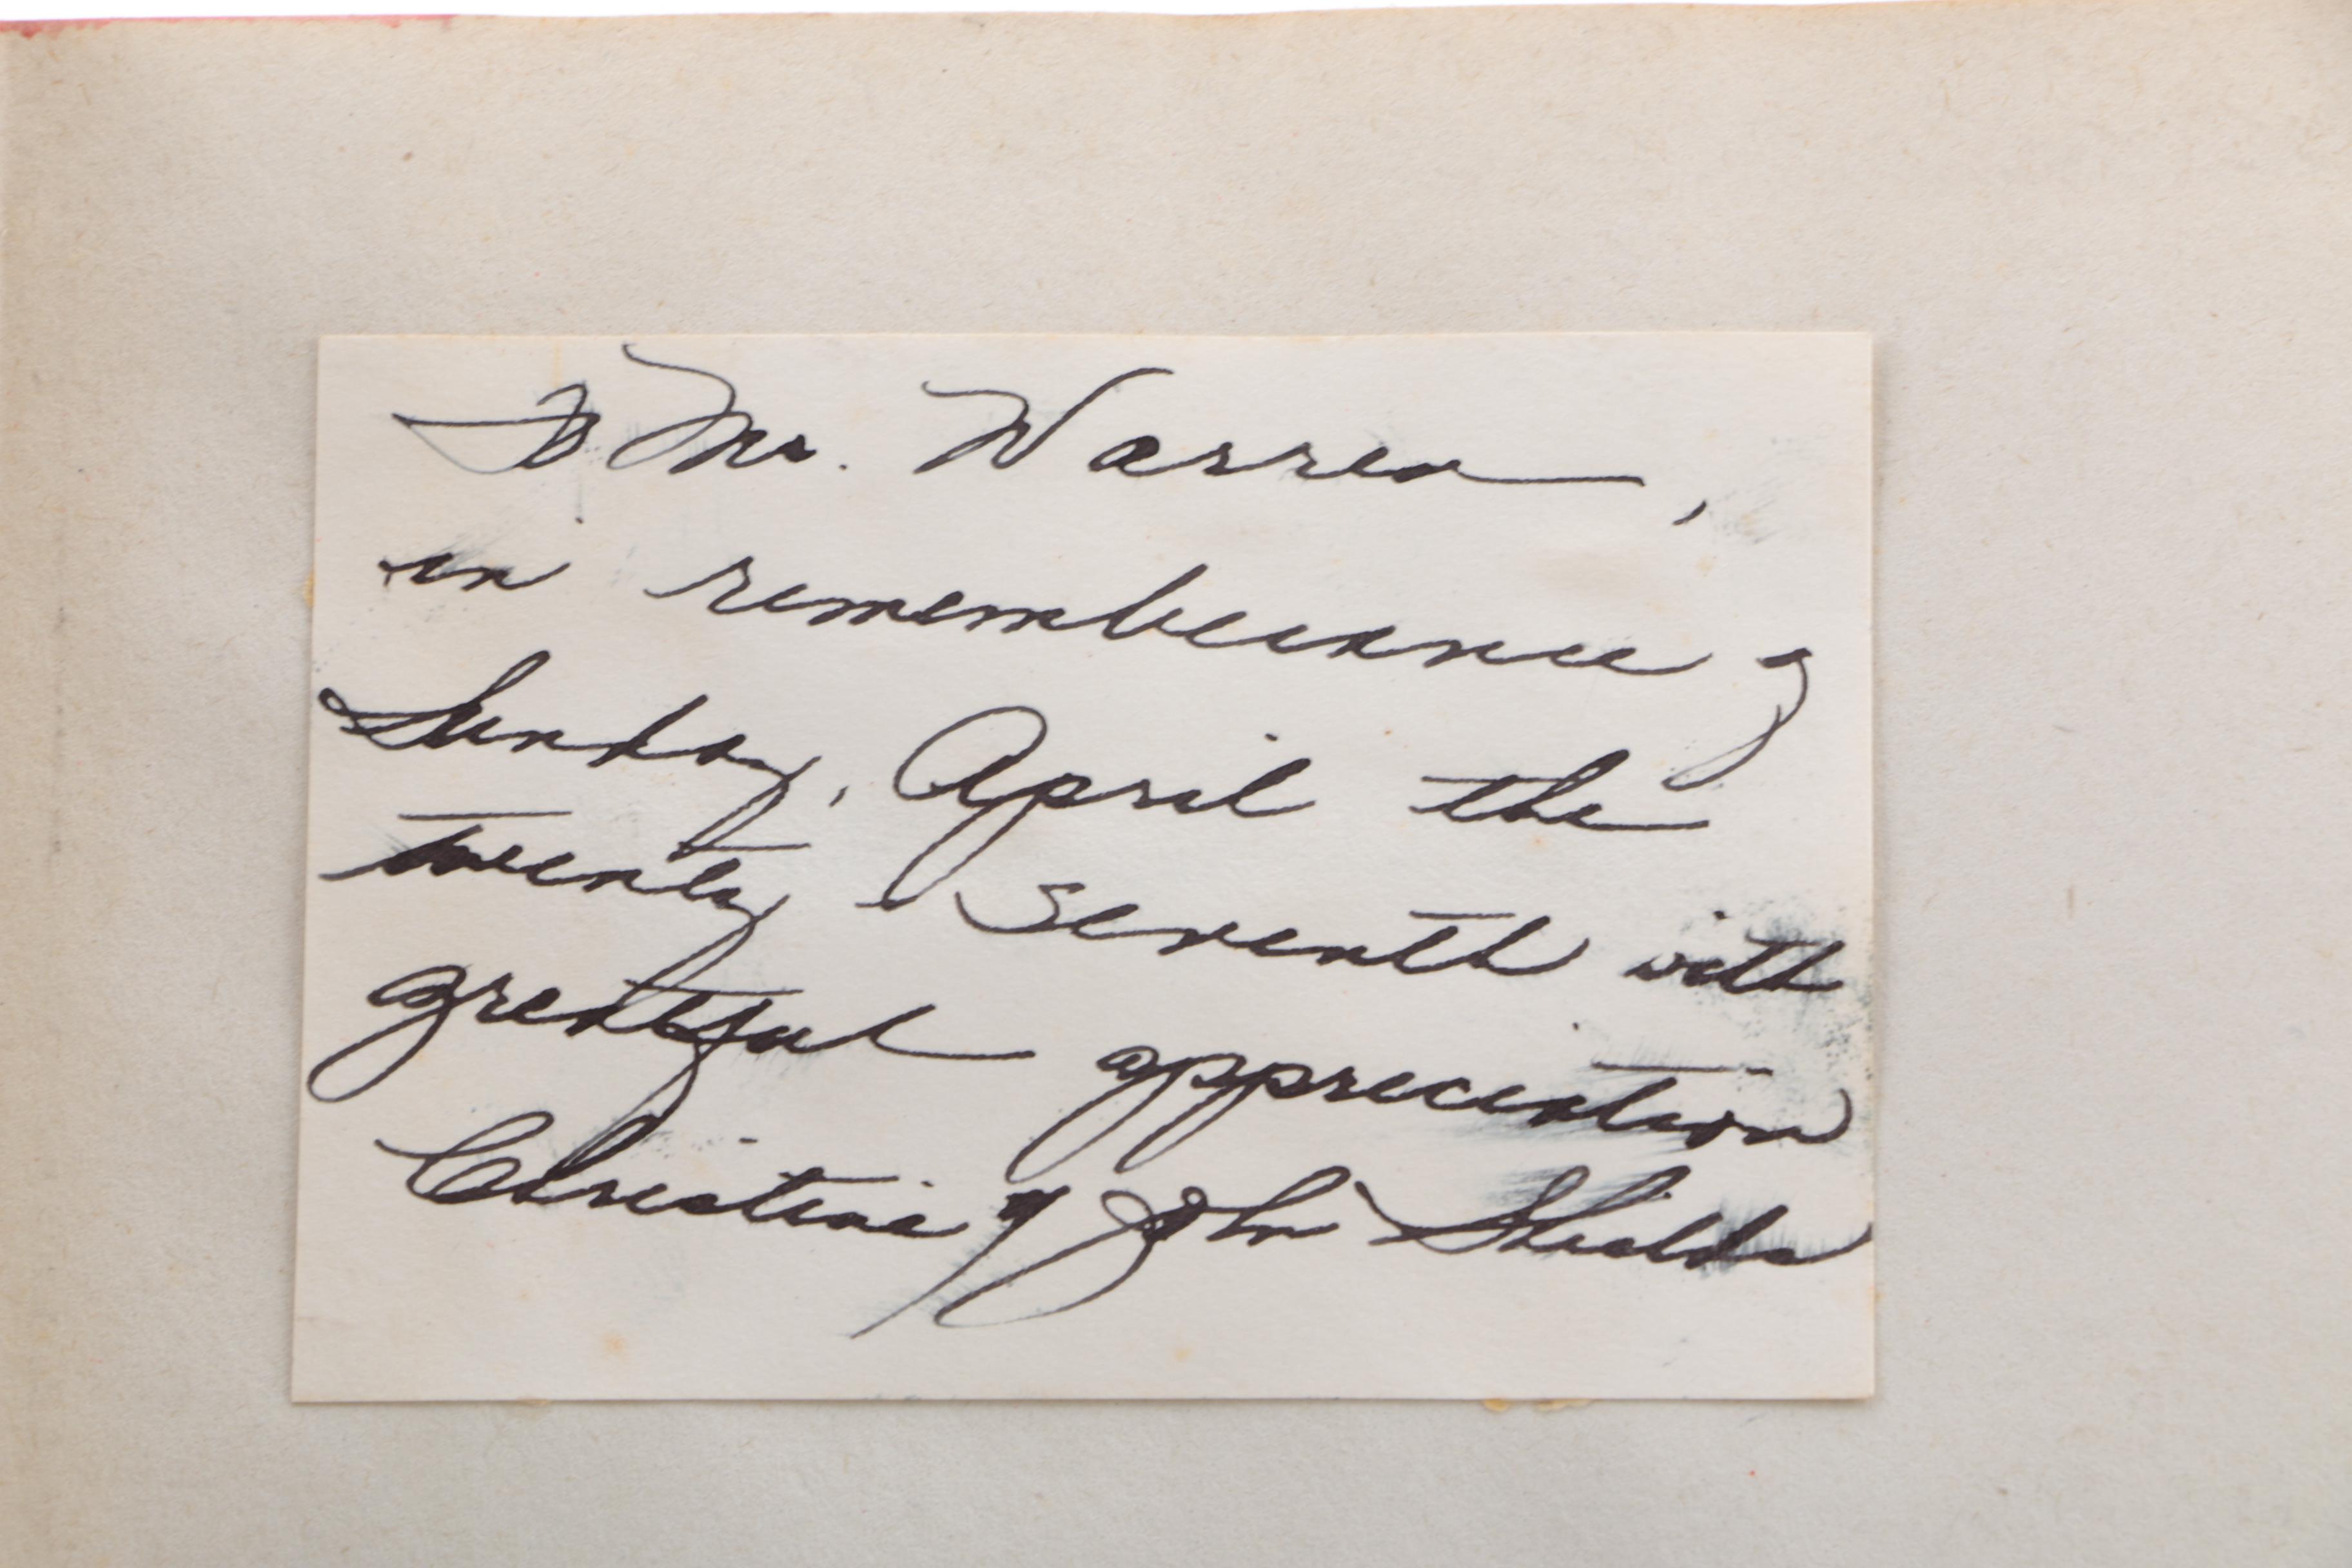 To Mr. Warren,
in rememberance of
Sunday, April the
twenty-seventh with
grateful appreciation
Christine & John Shields